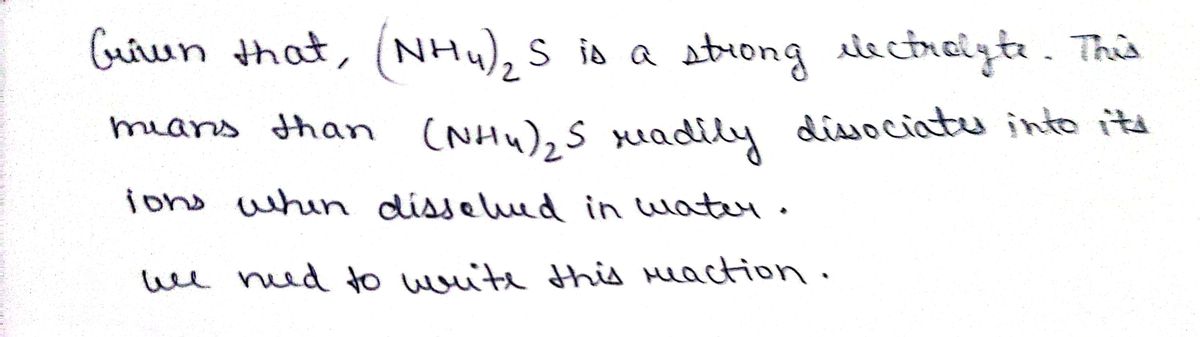 Given that, (NH₄)₂ S is a strong electrolyte. This
means than (NH₄)₂S readily dissociates into its
ions when dissolved in water.
We need to write this reaction.